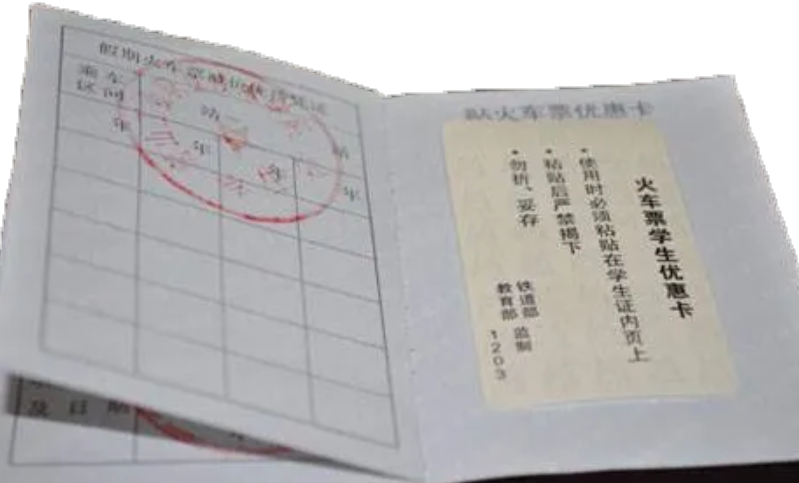 假期火车票
乘车
区间
站—
站
年
年
年
年
贴火车票优惠卡
火车票学生优惠卡
·使用时必须粘贴在学生证内页上
·粘贴后严禁揭下
·勿折、妥存
铁道部
教育部
监制
1203
及日期